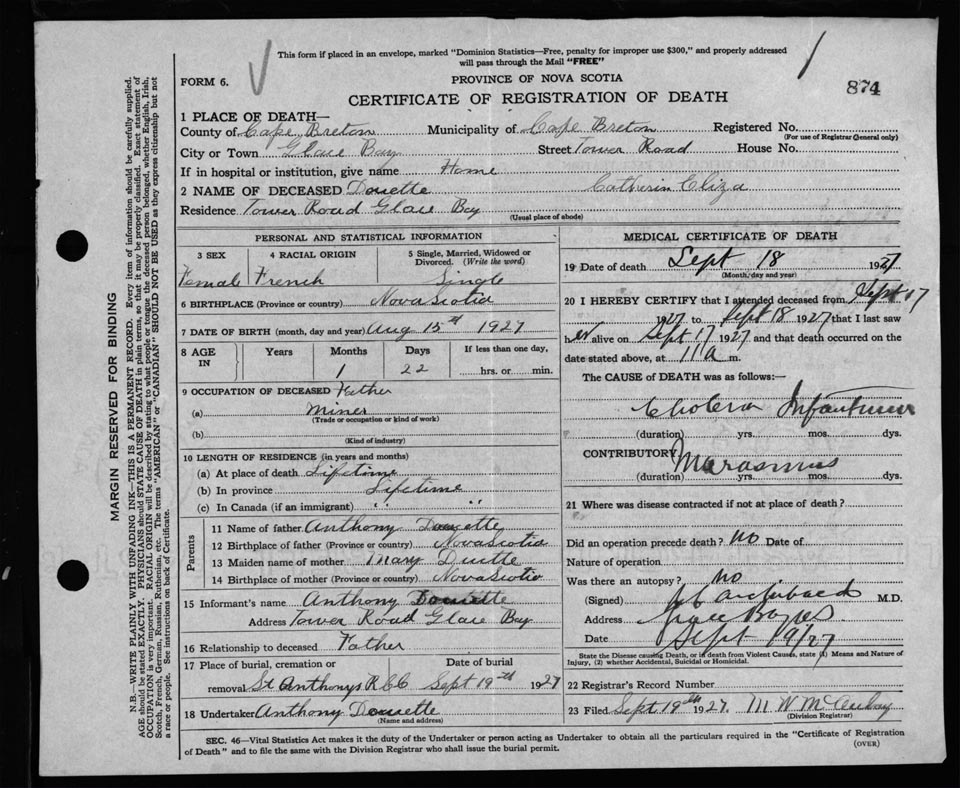 This form if placed in an envelope, marked "Dominion Statistics—Free, penalty for improper use $300," and properly addressed
will pass through the Mail "FREE"
FORM 6.
PROVINCE OF NOVA SCOTIA
874
CERTIFICATE OF REGISTRATION OF DEATH
1 PLACE OF DEATH—
County of Cape Breton Municipality of Cape Breton Registered No.
(For use of Registrar General only)
City or Town Glace Bay Street Tower Road House No.
If in hospital or institution, give name Home
2 NAME OF DECEASED Doucette Catherin Eliza
Residence Tower Road Glace Bay
(Usual place of abode)
PERSONAL AND STATISTICAL INFORMATION
3 SEX 4 RACIAL ORIGIN 5 Single, Married, Widowed or Divorced. (Write the word)
Female French Single
6 BIRTHPLACE (Province or country) Nova Scotia
7 DATE OF BIRTH (month, day and year) Aug 15th 1927
8 AGE IN Years Months Days If less than one day,
1 22 hrs. or min.
9 OCCUPATION OF DECEASED Father
(a) Miner
(Trade or occupation or kind of work)
(b)
(Kind of industry)
10 LENGTH OF RESIDENCE (in years and months)
(a) At place of death Lifetime
(b) In province Lifetime
(c) In Canada (if an immigrant) " " " "
Parents
11 Name of father Anthony Doucette
12 Birthplace of father (Province or country) Nova Scotia
13 Maiden name of mother Mary
14 Birthplace of mother (Province or country) Nova Scotia
15 Informant's name Anthony Doucette
Address Tower Road Glace Bay
16 Relationship to deceased Father
17 Place of burial, cremation or Date of burial
removal St Anthonys R C C Sept 19th 1927
18 Undertaker Anthony Doucette
(Name and address)
MEDICAL CERTIFICATE OF DEATH
19 Date of death Sept 18 1927
(Month, day and year)
20 I HEREBY CERTIFY that I attended deceased from Sept 17
1927 to Sept 18 1927 that I last saw
her alive on Sept 17 1927 and that death occurred on the
date stated above, at 11 a m.
The CAUSE OF DEATH was as follows:—
Cholera Infantum
(duration) yrs. mos. dys.
CONTRIBUTORY Marasmus
(duration) yrs. mos. dys.
21 Where was disease contracted if not at place of death?
Did an operation precede death? No Date of
Nature of operation
Was there an autopsy? no
(Signed) Archibald M.D.
Address Glace Bay NS
Date Sept 19/27
State the Disease causing Death, or in death from Violent Causes, state (1) Means and Nature of
Injury, (2) whether Accidental, Suicidal or Homicidal.
22 Registrar's Record Number
23 Filed Sept 19th 1927. M W McAulay
(Division Registrar)
SEC. 46—Vital Statistics Act makes it the duty of the Undertaker or person acting as Undertaker to obtain all the particulars required in the "Certificate of Registration
of Death" and to file the same with the Division Registrar who shall issue the burial permit.
(OVER)
MARGIN RESERVED FOR BINDING
N.B.—WRITE PLAINLY WITH UNFADING INK—THIS IS A PERMANENT RECORD. Every item of information should be carefully supplied.
AGE should be stated EXACTLY. PHYSICIANS should STATE CAUSE OF DEATH in plain terms, so that it may be properly classified. Exact statement of
OCCUPATION is very important. RACIAL ORIGIN will be described by stating to what people or tongue the deceased person belonged, whether English, Irish,
Scotch, French, German, Russian, Ruthenian, etc. The terms "AMERICAN" or "CANADIAN" SHOULD NOT BE USED as they express citizenship but not
a race or people. See instructions on back of Certificate.